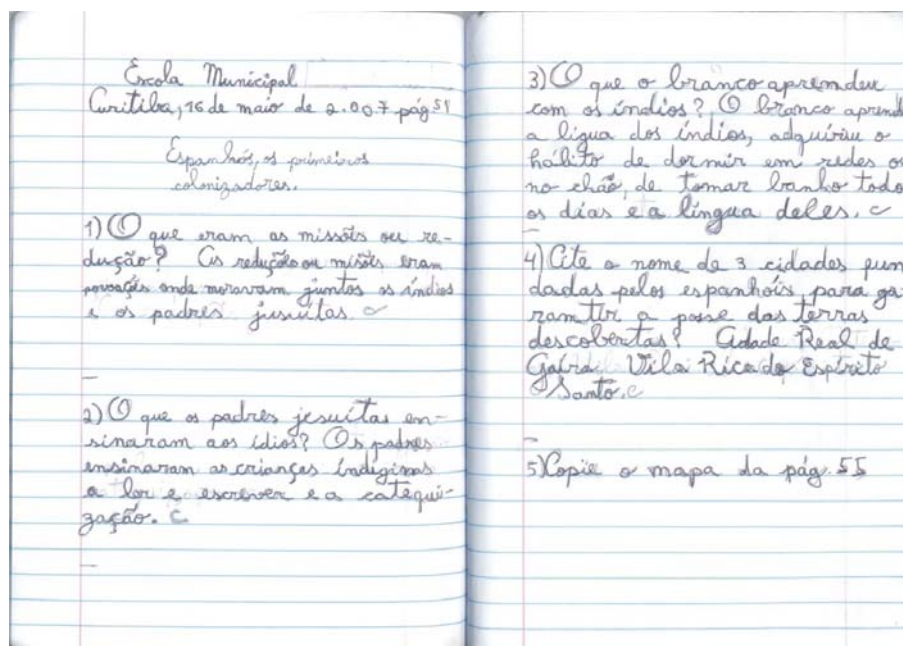 Escola Municipal
Curitiba, 16 de maio de 2.007 pág 51
Espanhóis, os primeiros
colonizadores.
1) O que eram as missões ou re-
dução? As reduções ou missões eram
povoações onde moravam juntos os índios
e os padres jesuítas. c
2) O que os padres jesuítas en-
sinaram aos idios? Os padres
ensinaram as crianças indíginas
a ler e escrever e a catequi-
zação. c
3) O que o branco aprendeu
com os índios? O branco aprend
a ligua dos índios, adquiriu o
hábito de dormir em redes ou
no chão, de tomar banho todo
os dias e a língua deles. c
4) Cite o nome de 3 cidades fun
dadas pelos espanhóis para ga
rantir a posse das terras
descobertas? Cidade Real de
Vila Rica do Espírito
Santo. c
5) Copie o mapa da pág. 55